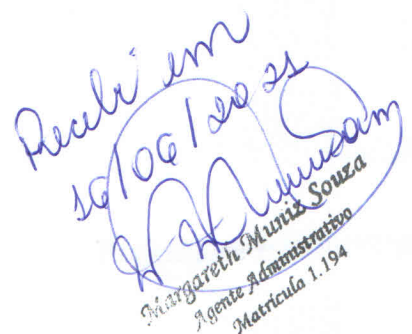 Recebi em
16/06/2021
Margareth Muniz Souza
Agente Administrativo
Matrícula 1.194